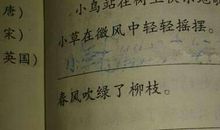 唐）
小鸟站在树上快乐地
宋）
小草在微风中轻轻摇摆。
英国）
春风吹绿了柳枝。